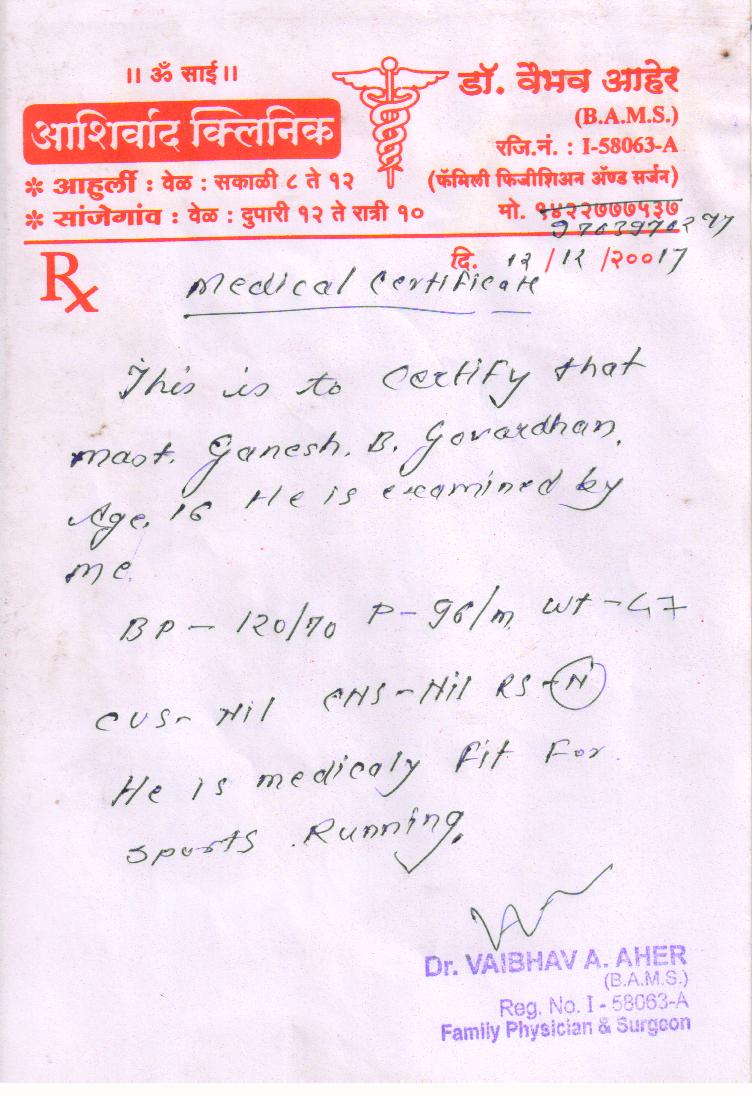 ।। ॐ साई ।।
आशिर्वाद क्लिनिक
✻ आहुर्ली : वेळ : सकाळी ८ ते १२
✻ सांजेगांव : वेळ : दुपारी १२ ते रात्री १०
डॉ. वैभव आहेर
(B.A.M.S.)
रजि.नं. : I-58063-A
(फॅमिली फिजीशिअन ॲण्ड सर्जन)
मो. ९४२२७७७५३७
Rx
दि. 12 / 12 /२००17
Medical Certificate
This is to Certify that
mast. Ganesh. B. Govardhan.
Age. 16 He is examined by
me.
BP - 120/70 P - 96/m wt - 47
CVS - Nil CNS - Nil RS - N
He is medicaly fit for
sports Running.
Dr. VAIBHAV A. AHER
(B.A.M.S.)
Reg. No. I - 58063-A
Family Physician & Surgeon